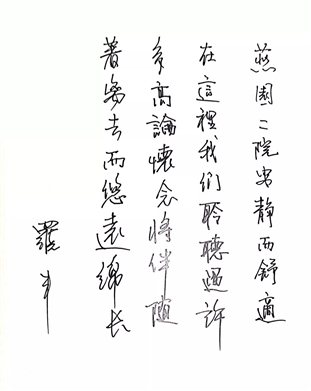 燕園二院安静而舒適
在這裡我们聆聽過許
多高論懷念將伴随
著去而悠遠綿长
羅丰